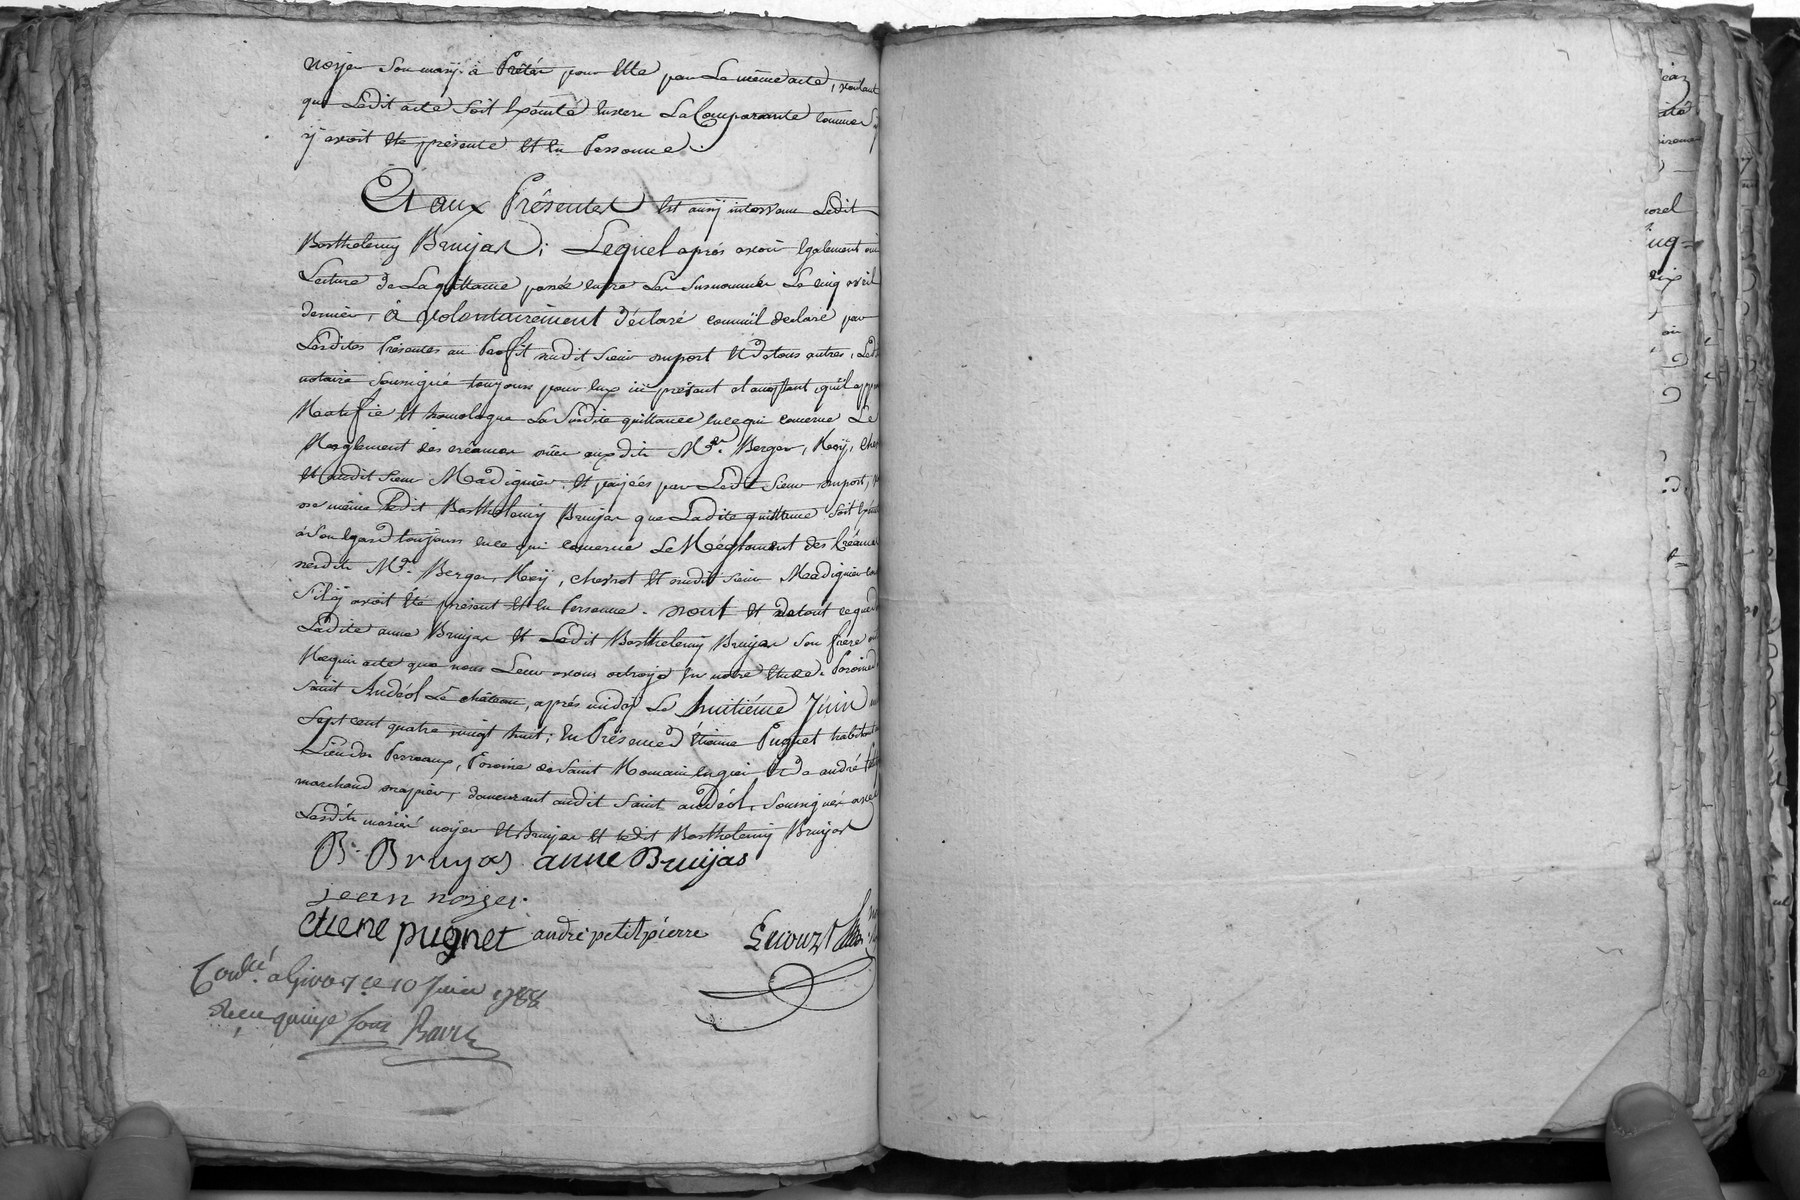 noyer Son marÿ à Prêtér pour Elle par Le même acte, voulant
que Ledit acte Soit Exécuté Envers La Comparante comme Sÿ
ÿ avoit Eté présente Et En Personne.
Et aux Présentes Est aussÿ intervenu Ledit
Barthelemy Bruÿas; Lequel après avoir Egalement oui
Lecture de La quittance passée Entre Les Susnommés Le cinq avril
dernier, à volontairement déclaré comm'il declare par
Lesdites Présentes au Profit dudit Sieur ouport Et de tous autres, Led.
notaire Soussigné toujours pour Eux ici présent et acceptant, qu'il app
Ratifie Et homologue La Susdite quittance En ce qui concerne Le
Reglement des créances dües auxdits Mrs. Berger, Reÿ, Che
Et audit Sieur Madignier, Et païées par Ledit Sieur ouport,
même Ledit Barthelemy Bruÿas que Ladite quittance Soit
à Son Egard toujours En ce qui concerne Le Réglement des Créances
desdits Mrs. Berger, Reÿ, chevrot Et dudit Sieur Madignier
S'il ÿ avoit Eté présent Et En Personne. dont Et detout ce que
Ladite anne Bruÿas Et Ledit Barthelemy Bruÿas Son frère
Requis acte que nous Leur avons octroyé En notre Etude, Paroisse
Saint Andéol Le château, après midÿ Le huitiéme Juin
Sept cent quatre vingt huit; En Présence d'étienne Pugnet habitant
Lieu des Parreaux, Paroisse de Saint Romain Engier Et de andré
marchand drapier, demeurant audit Saint andéol, Soussignés avec
Lesdits mariés noyer Et Bruÿas Et Ledit Barthelemy Bruÿas
B. Bruyas anne Bruijas
jean noyer.
etiene pugnet andré petitpierre
Contlé. a Givors ce 10 Juin 1788
Recu quinze sous